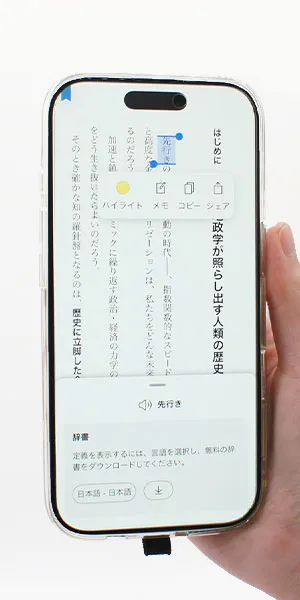 はじめに
政学が照らし出す人類の歴史
先行き
動の時代――、指数関数的なスピード
と高度な
リゼーションは、私たちをどんな未来
るのだろう
ミックに繰り返す政治・経済の力学の
加速と鎮
をどう生き抜いたらよいのだろう。
そのとき確かな知の羅針盤となるのは、歴史に立脚した
ハイライト メモ コピー シェア
先行き
辞書
定義を表示するには、言語を選択し、無料の辞
書をダウンロードしてください。
日本語 - 日本語